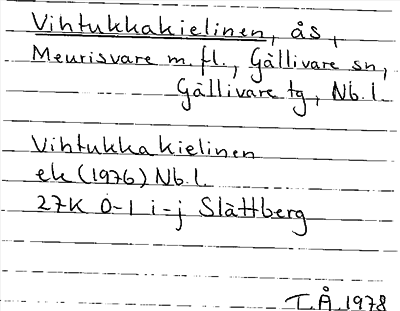 Vihtukkakielinen, ås,
Meurisvare m.fl., Gällivare sn,
Gällivare tg, Nb.l.
Vihtukkakielinen
ek (1976) Nb.l.
27K 0-1 i-j Slättberg
T.Å. 1978